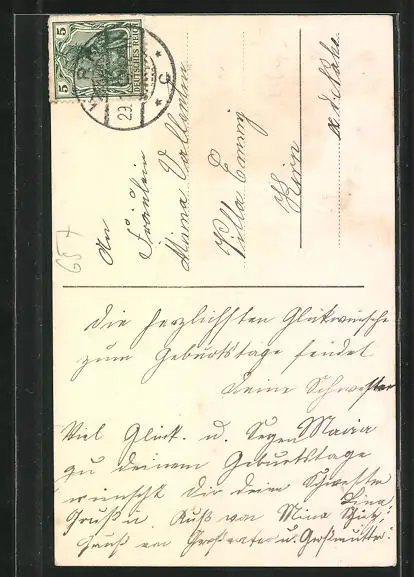 5
5
DEUTSCHES REICH
29.
* c *
An
Fräulein
Minna
Villa Emmy
Kirn
a. d. Nahe
687
Die herzlichsten Glückwünsche
zum Geburtstage sendet
Deine Schwester
Maria
Viel Glück. u. Segen
zu deinem Geburtstage
wünscht Dir dein Schwester
Lina
Gruß u. Kuß von Mina
Gruß von Großvater u. Großmutter.